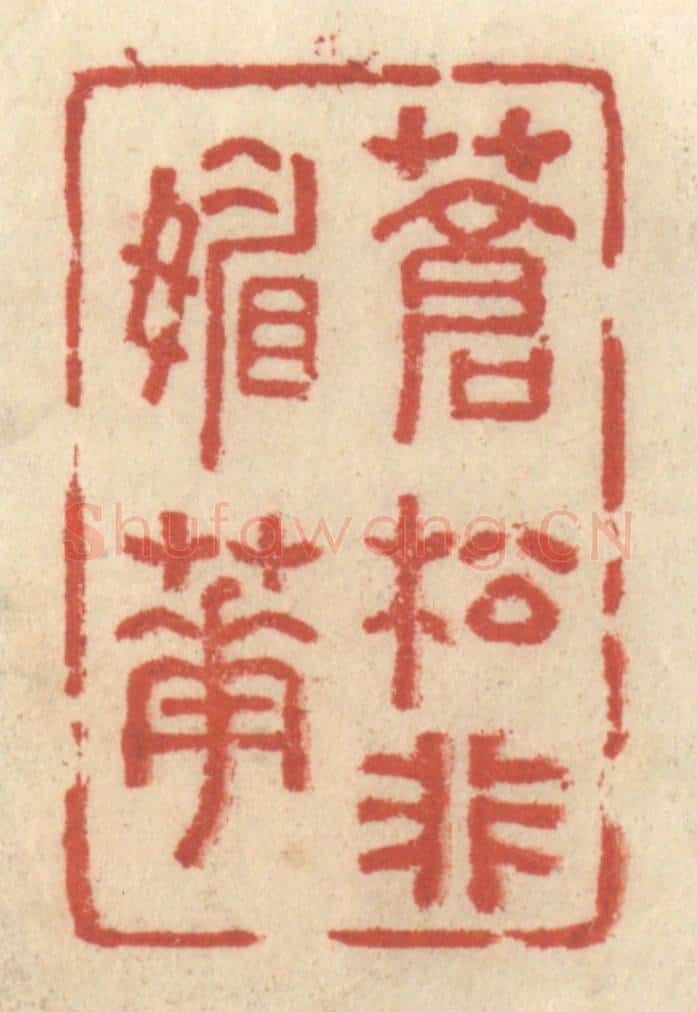 蒼松非
媚華
Shufawang.CN